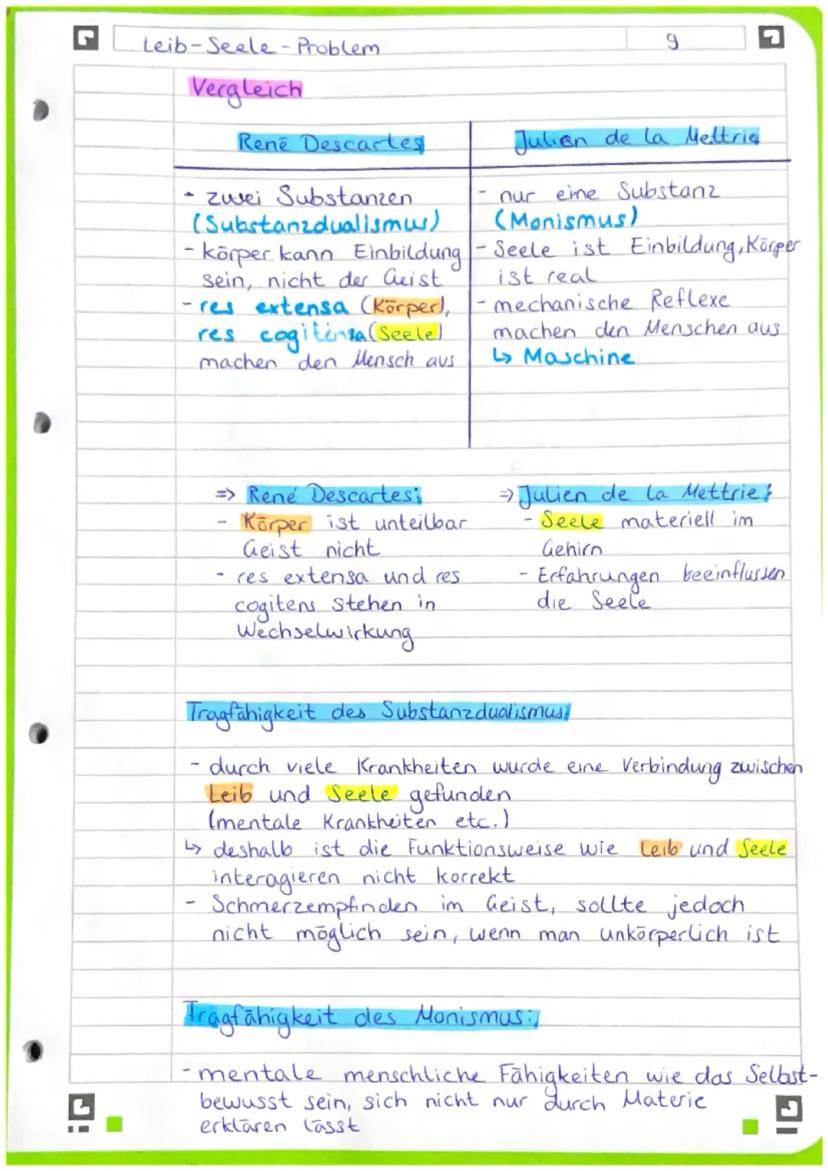 Leib-Seele-Problem
9
Vergleich
René Descartes
- zwei Substanzen
(Substanzdualismus)
- körper kann Einbildung
sein, nicht der Geist
- res extensa (Körper),
res cogitensa (Seele)
machen den Mensch aus
Julien de la Mettrie
- nur eine Substanz
(Monismus)
- Seele ist Einbildung, Körper
ist real
- mechanische Reflexe
machen den Menschen aus
↳ Maschine
=> René Descartes:
- Körper ist unteilbar
Geist nicht
- res extensa und res
cogitens stehen in
Wechselwirkung
=> Julien de la Mettrie:
- Seele materiell im
Gehirn
- Erfahrungen beeinflussen
die Seele
Tragfähigkeit des Substanzdualismus:
- durch viele Krankheiten wurde eine Verbindung zwischen
Leib und Seele gefunden
(mentale Krankheiten etc.)
↳ deshalb ist die Funktionsweise wie Leib und Seele
interagieren nicht korrekt
- Schmerzempfinden im Geist, sollte jedoch
nicht möglich sein, wenn man unkörperlich ist
Tragfähigkeit des Monismus:
- mentale menschliche Fähigkeiten wie das Selbst-
bewusst sein, sich nicht nur durch Materie
erklären lässt